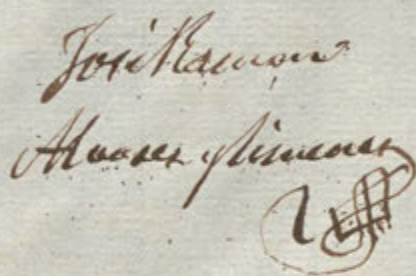 José Ramon
Alvares Ximenez